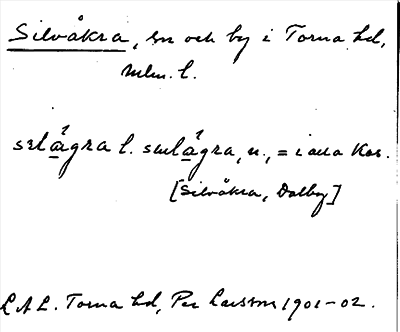 Silvåkra, sn och by i Torna hd,
Mlm. l.
sɛlågra l. səlågra, n., = i alla Kas.
[Silvåkra, Dalby]
L A L. Torna hd, Per Larsson 1901-02.